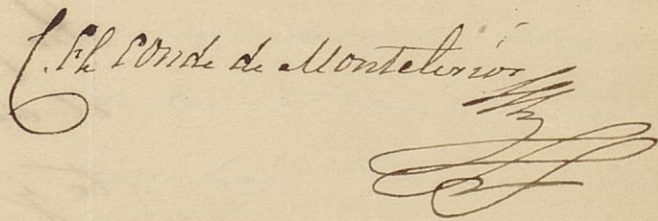 El Conde de Montelirios